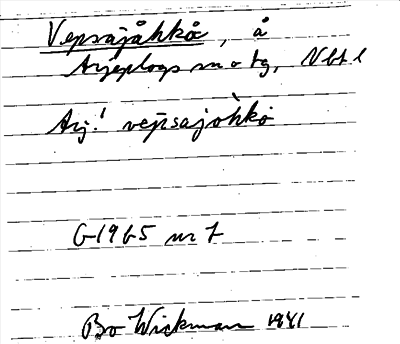 Vepsajåhkå, å
Arjeplogs sn o tg, Vbt l
Arj.! vepsajohko
G 1965 nr 7
Bo Wickman 1941